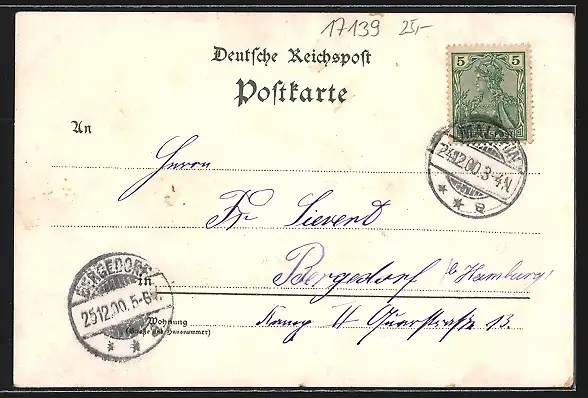 17139 25,-
Deutsche Reichspost
Postkarte
5 5
An
24.12.00.3-4N.
* * e
Herrn
Fr. Sievert
Bergedorf b/ Hamburg
BERGEDORF
25.12.00.5-6V.
* *
in
Wohnung
(Straße und Hausnummer)
Kamp II Querstraße 13.